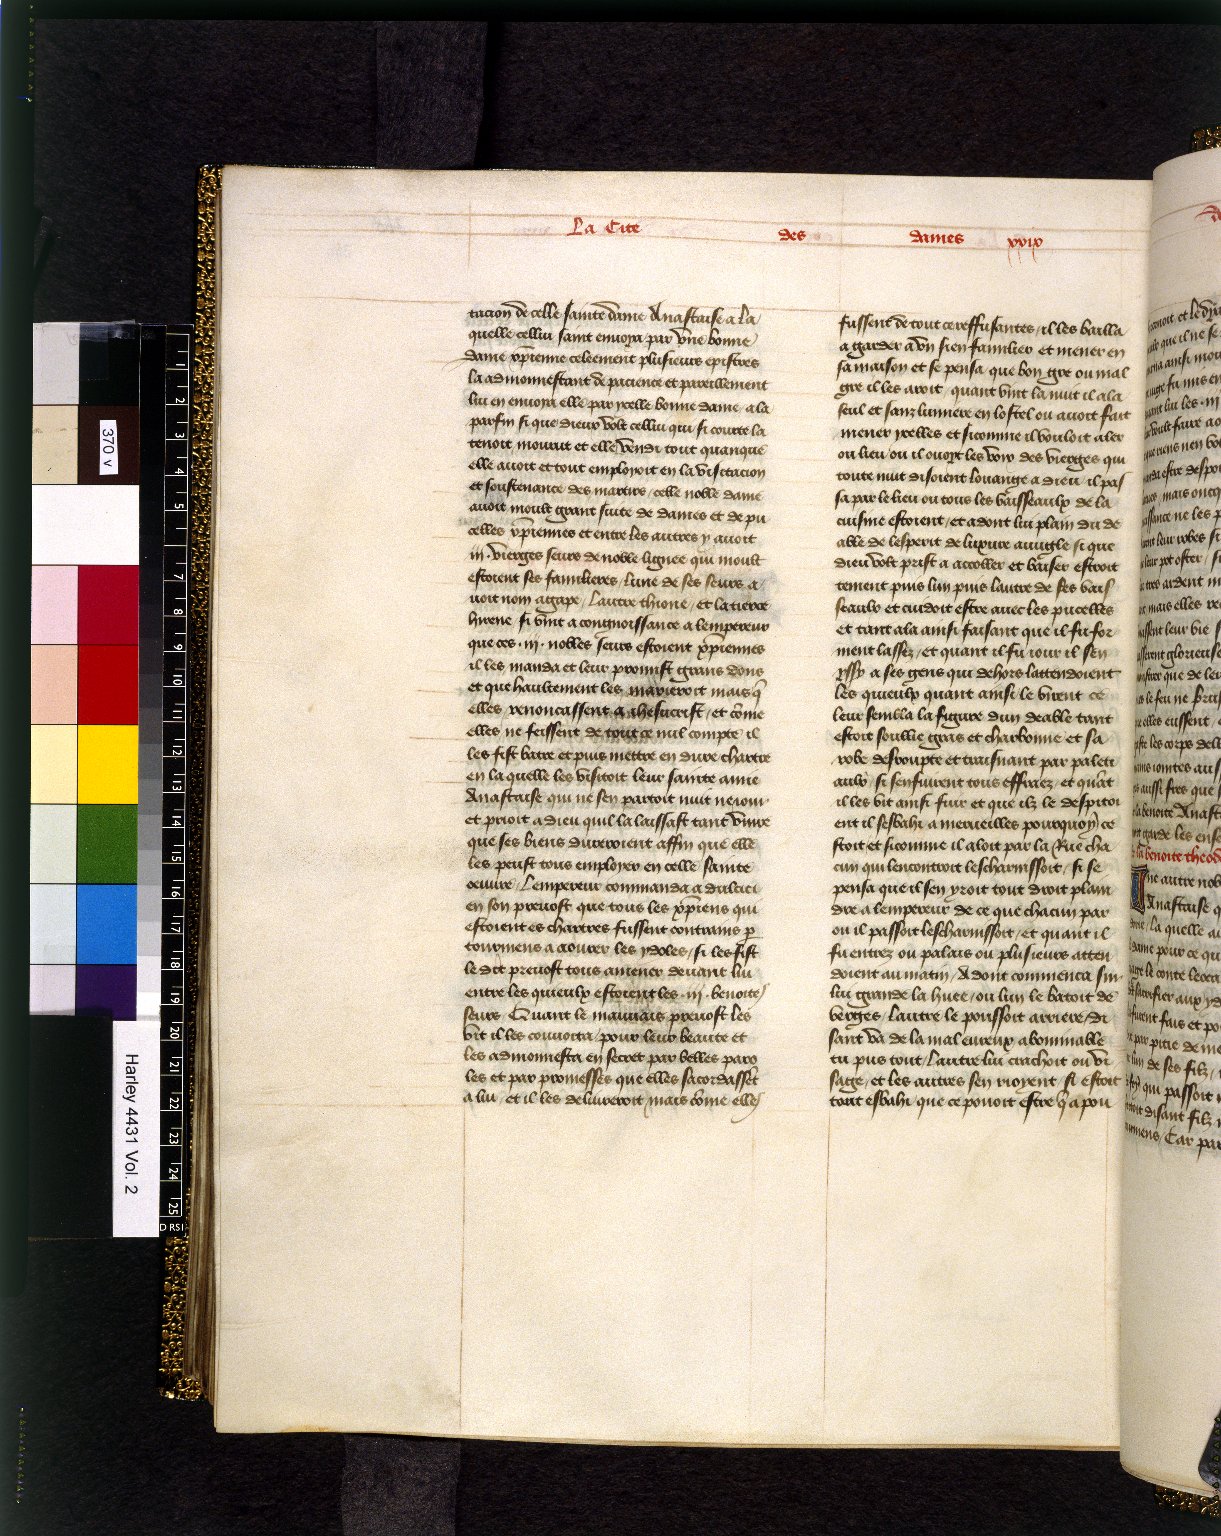 La Cite des dames xxix
tacion de celle sainte dame Anastaise a la
quelle cellui saint envoya par une bonne
dame xp̄ienne celeement plusieurs epistres
la admonnestant de pacience et pareillement
lui en envoya elle par ycelle bonne dame / a la
parfin si que dieux volt cellui qui si courte la
tenoit mourut et elle vendi tout quanque
elle avoit et tout employoit en la visitacion
et soustenance des martirs / celle noble dame
avoit moult grant suite de dames et de pu
celles xp̄iennes et entre les autres y avoit
.iij. vierges seurs de noble lignee qui moult
estoient ses familieres / lune de ses seurs a
voit nom agape / lautre thione / et la tierce
hirene / si vint a congnoissance a lempereur
que ces .iij. nobles seurs estoient xp̄piennes
il les manda et leur promist grans dons
et que haultement les marieroit mais q̄
elles renoncassent a ihesucrist / et cōme
elles ne feissent de tout ce nul compte il
les fist batre et puis mettre en dure chartre
en la quelle les visitoit leur sainte amie
Anastaise qui ne sen partoit nuit ne iour
et prioit a dieu quil la laissast tant vivre
que ses biens dureroient affin que elle
les peust tous employer en celle sainte
oeuvre / Lempereur commanda a dulcici
en son prevost que tous les xp̄piens qui
estoient es chartres fussent contrains p
tourmens a aourer les ydoles / si les fist
le dit prevost tous amener devant lui
entre les quieulx estoient les .iij. benoites
seurs / Quant le mauvais prevost les
vit il les couvoita / pour leur beaute et
les admonnesta en secret par belles paro
les et par promesses que elles sacordassēt
a lui / et il les delivreroit / mais cōme elles
fussent de tout ce reffusantes / il les bailla
a garder a un sien familier et mener en
sa maison et se pensa que bon gre ou mal
gre il les aroit / quant vint la nuit il ala
seul et sanz lumiere en lostel ou avoit fait
mener ycelles et sicomme il vouloit aler
ou lieu ou il ouoyt les voix des vierges qui
toute nuit disoient louange a dieu il pas
sa par le lieu ou tous les vaisseaulx de la
cuisine estoient / et adont lui plain du de
able de lesperit de luxure avugle si que
dieu volt prist a accoller et baiser estroit
tement puis lun puis lautre de ses vais
seaulx et cuidoit estre avec les pucelles
et tant ala ainsi faisant que il fu for
ment lassez / et quant il fu iour il sen
yssy a ses gens qui dehors lattendoient
les quieulx quant ainsi le virent ce
leur sembla la figure dun deable tant
estoit soullie gras et charbonne et sa
robe desroupte et traisnant par paleti
aulx / si senfuirent tous effraez / et quāt
il les vit ainsi fuir et que ilz le despitoi
ent il sesbahi a merveilles pourquoy ce
stoit et sicomme il aloit par la Rue cha
cun qui lencontroit lescharnissoit / si se
pensa que il sen yroit tout droit plain
dre a lempereur de ce que chacun par
ou il passoit lescharnissoit / et quant il
fu entrez ou palais ou plusieurs atten
doient au matin / Adont commenca sur
lui grande la huee / ou lun le batoit de
verges / lautre le poussoit arriere / di
sant va de la mal eureux abominable
tu puis tout / Lautre lui crachoit ou vi
sage / et les autres sen rioyent / si estoit
tout esbahi que ce pouoit estre
370 v
Harley 4431 Vol. 2
1
2
3
4
5
6
7
8
9
10
11
12
13
14
15
16
17
18
19
20
21
22
23
24
25